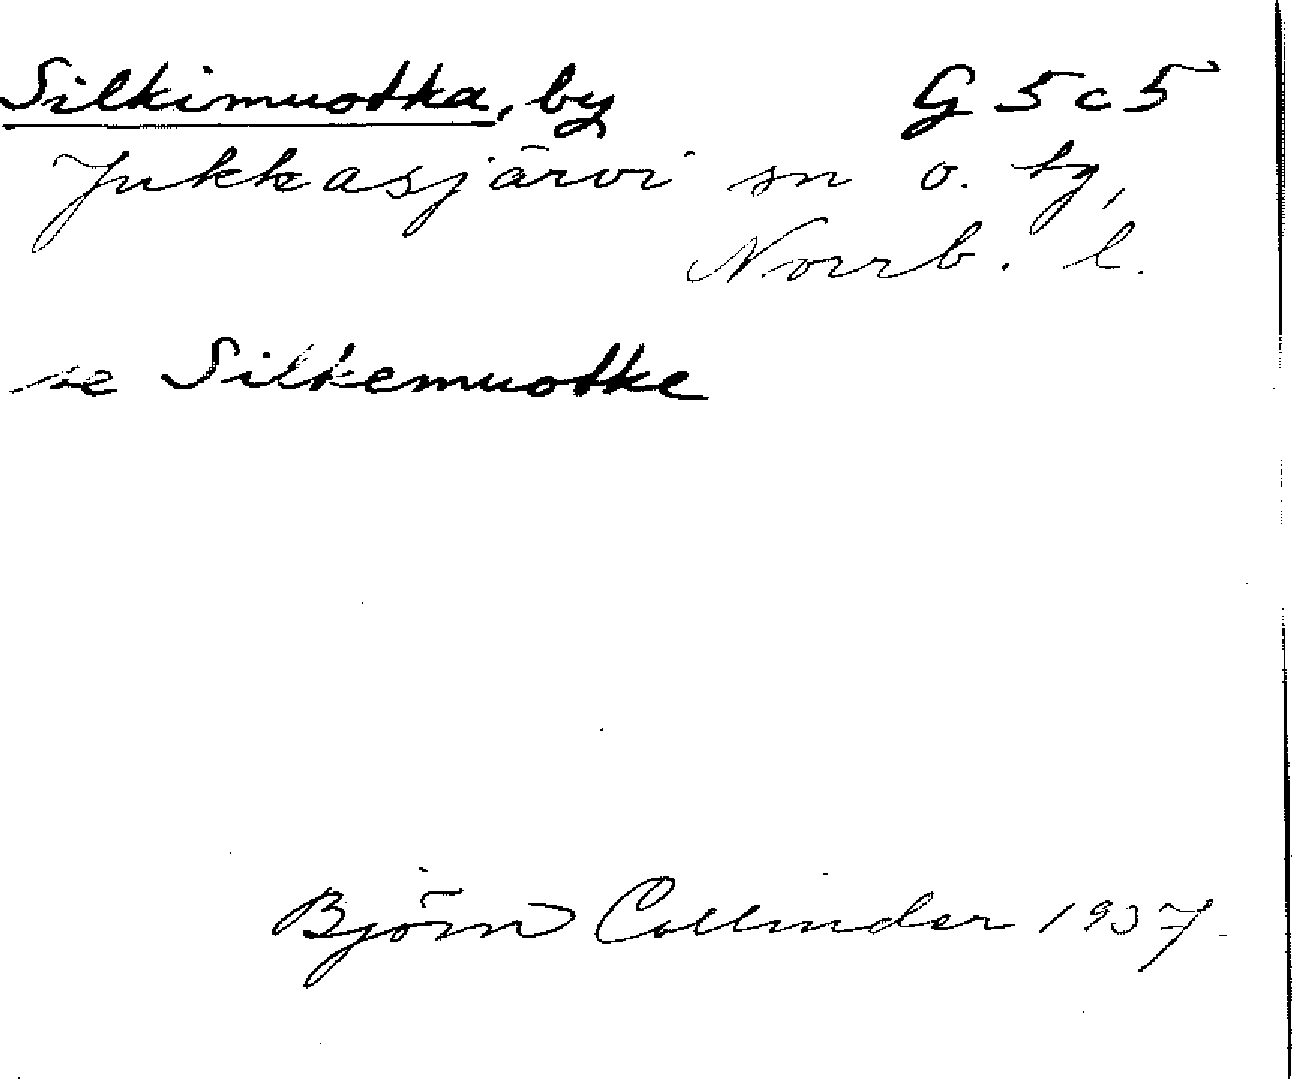 Silkimuotka, by G 5 c 5
Jukkasjärvi sn o. tg,
Norrb. l.
se Silkemuotke
Björn Collinder 1937